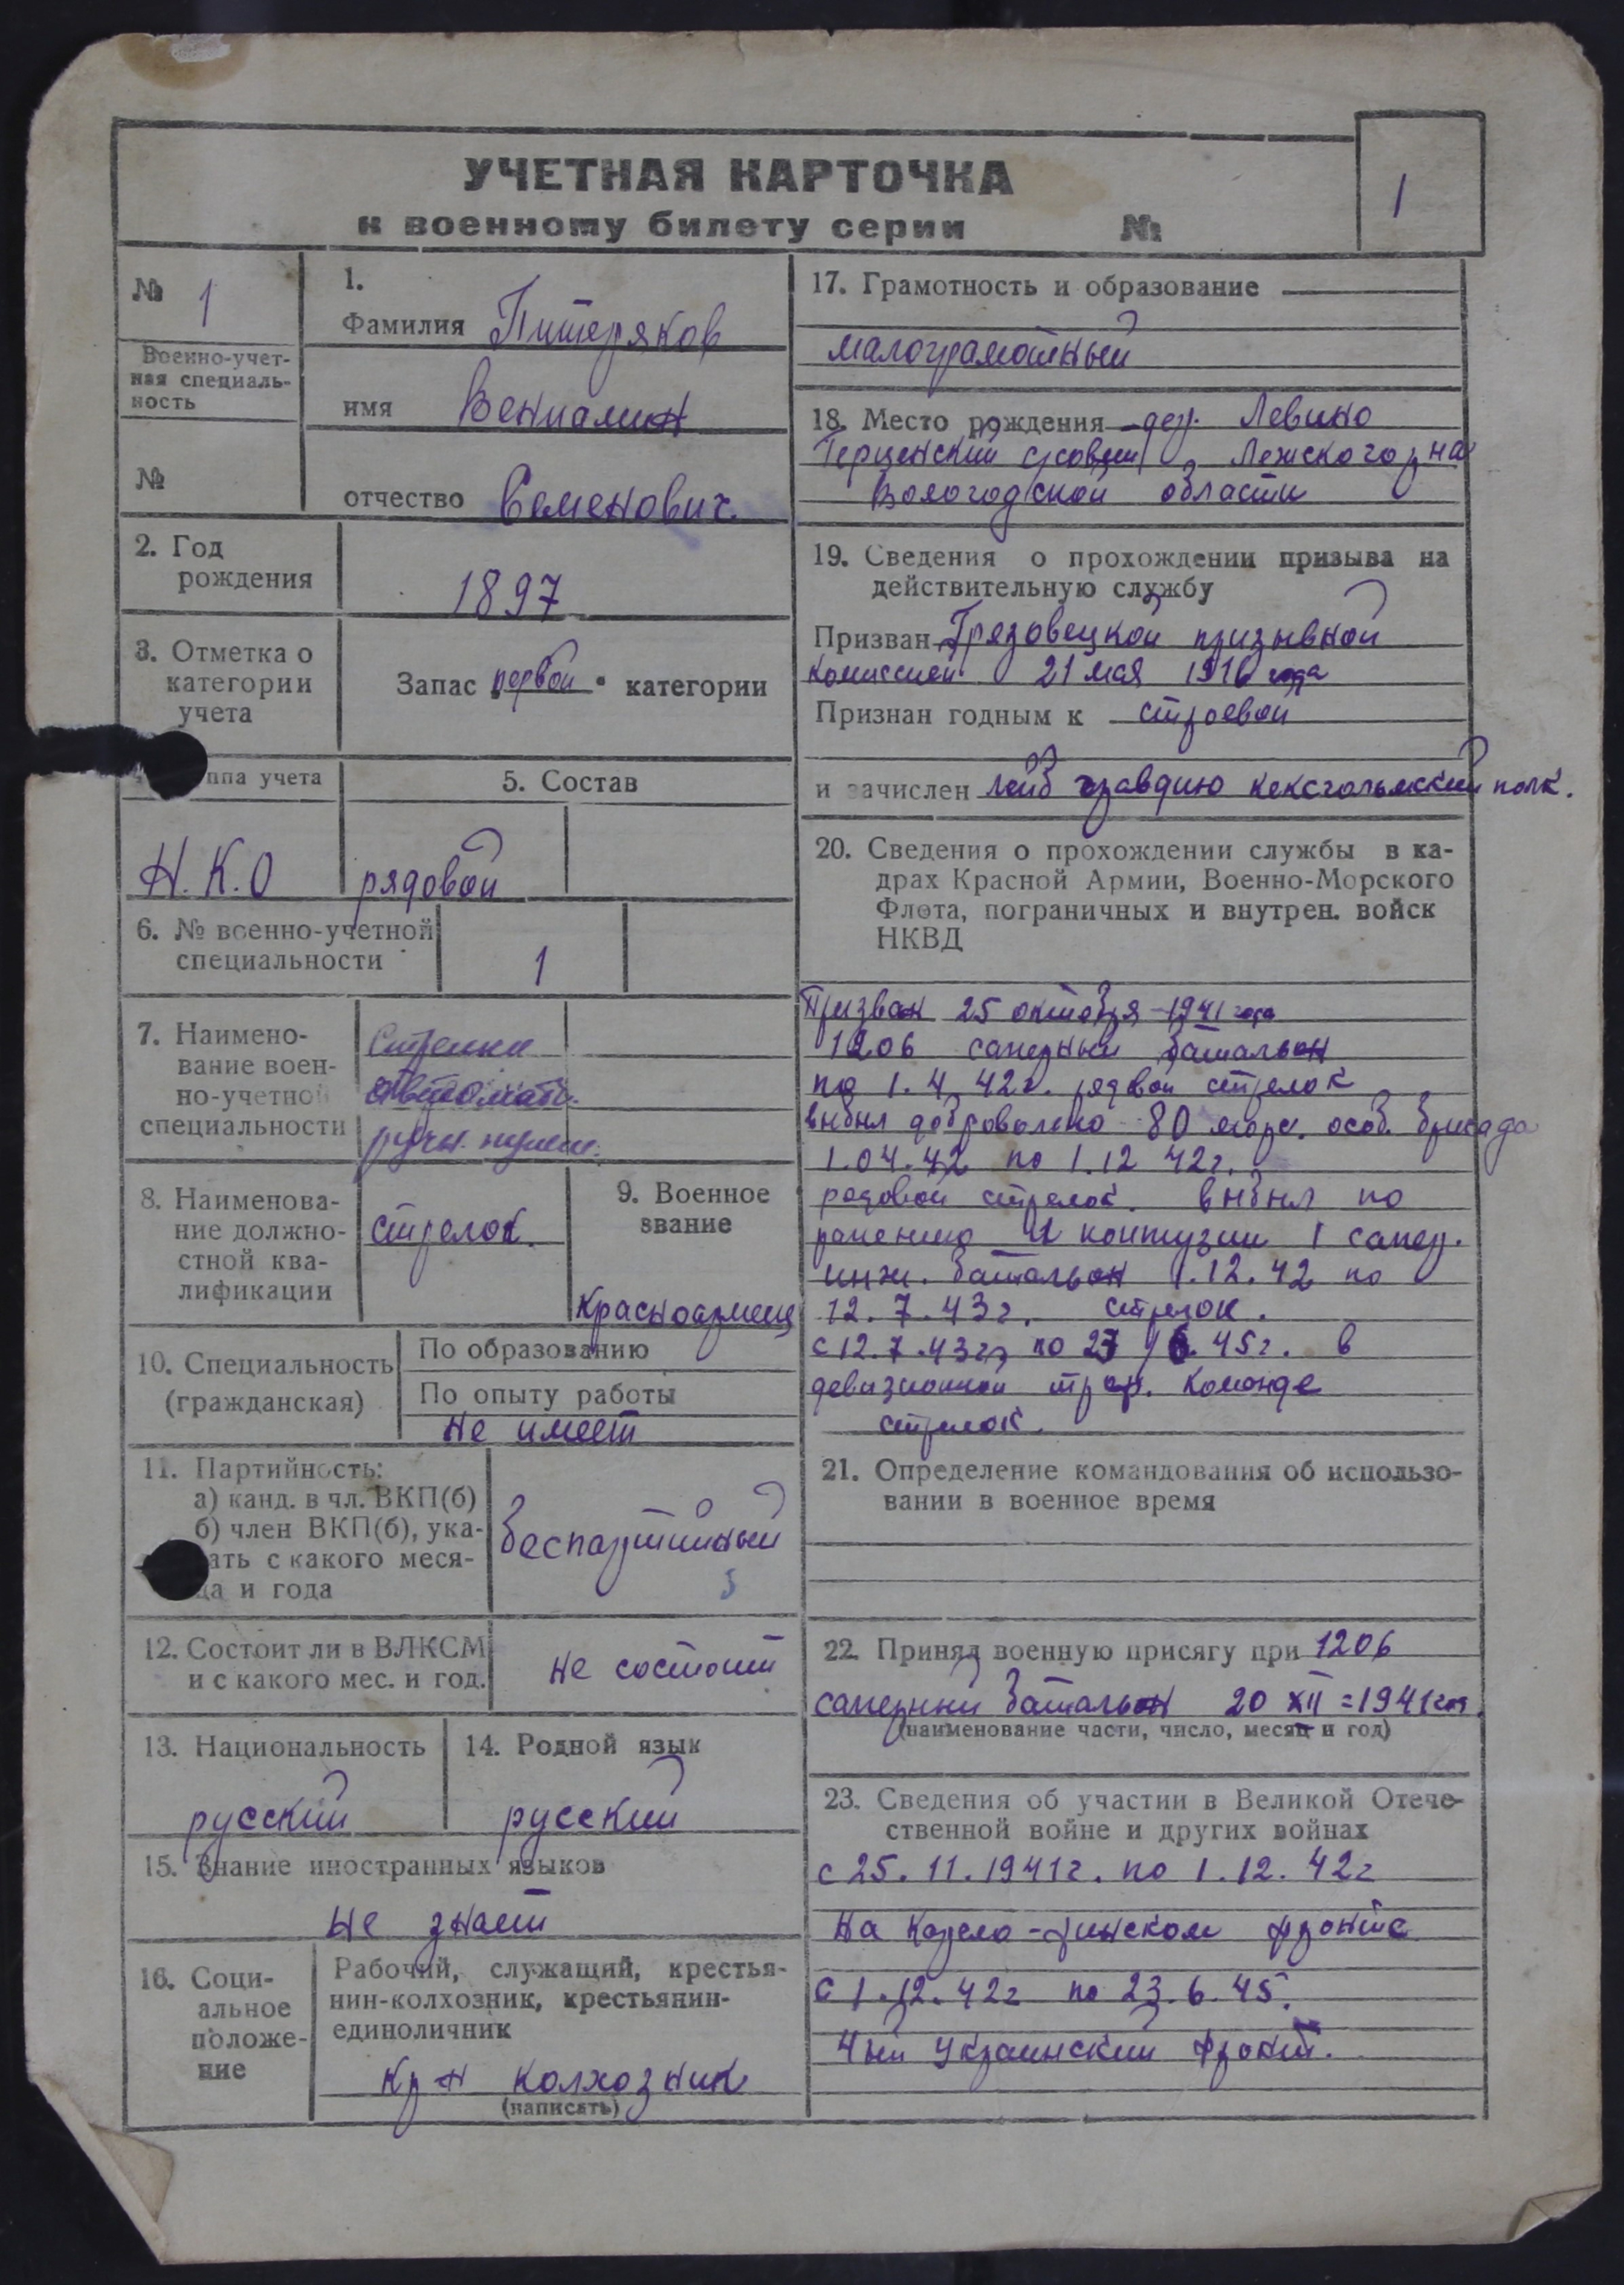 УЧЕТНАЯ КАРТОЧКА
к военному билету серии №
1
№ 1
Военно-учет-
ная специаль-
ность
№
1.
Фамилия Питеряков
имя Вениамин
отчество Семенович
2. Год
рождения
1897
3. Отметка о
категории
учета
Запас первой категории
ппа учета
Н.К.О
5. Состав
рядовой
6. № военно-учетной
специальности
1
7. Наимено-
вание воен-
но-учетной
специальности
Стрелки
автомат.
ручн. пулем.
8. Наименова-
ние должно-
стной ква-
лификации
стрелок.
9. Военное
звание
Красноармеец
10. Специальность
(гражданская)
По образованию
По опыту работы
не имеет
11. Партийность:
а) канд. в чл. ВКП(б)
б) член ВКП(б), ука-
ать с какого меся-
ца и года
беспартийный
12. Состоит ли в ВЛКСМ
и с какого мес. и год.
не состоит
13. Национальность
русский
14. Родной язык
русский
15. Знание иностранных языков
не знает
16. Соци-
альное
положе-
ние
Рабочий, служащий, крестья-
нин-колхозник, крестьянин-
единоличник
кр н колхозник
(написать)
17. Грамотность и образование
малограмотный
18. Место рождения дер. Левино
ссовет Лежского р на
Вологодской области
19. Сведения о прохождении призыва на
действительную службу
Призван Грязовецкой призывной
комиссией 21 мая 1916 года
Признан годным к строевой
и зачислен лейб гвардию кексгольмский полк.
20. Сведения о прохождении службы в ка-
драх Красной Армии, Военно-Морского
Флота, пограничных и внутрен. войск
НКВД
Призван 25 октября 1941 года
1206 саперный батальон
по 1.4.42г. рядвой стрелок
выбыл добровольно 80 морс. особ. бригада
1.04.42 по 1.12 42г.
рядовой стрелок. выбыл по
ранению и контузии 1 сапер.
инж. батальон 1.12.42 по
12.7.43г. стрелок.
с 12.7.43г. по 45г. в
девизионной команде
стрелок.
21. Определение командования об использо-
вании в военное время
22. Принял военную присягу при 1206
саперный батальон 20 XII = 1941
(наименование части, число, месяц и год)
23. Сведения об участии в Великой Отече-
ственной войне и других войнах
с 25.11.1941г. по 1.12.42г
на Карело-финском фронте
с 1.12.42г по 23.6.45.
4ый украинский фронт.